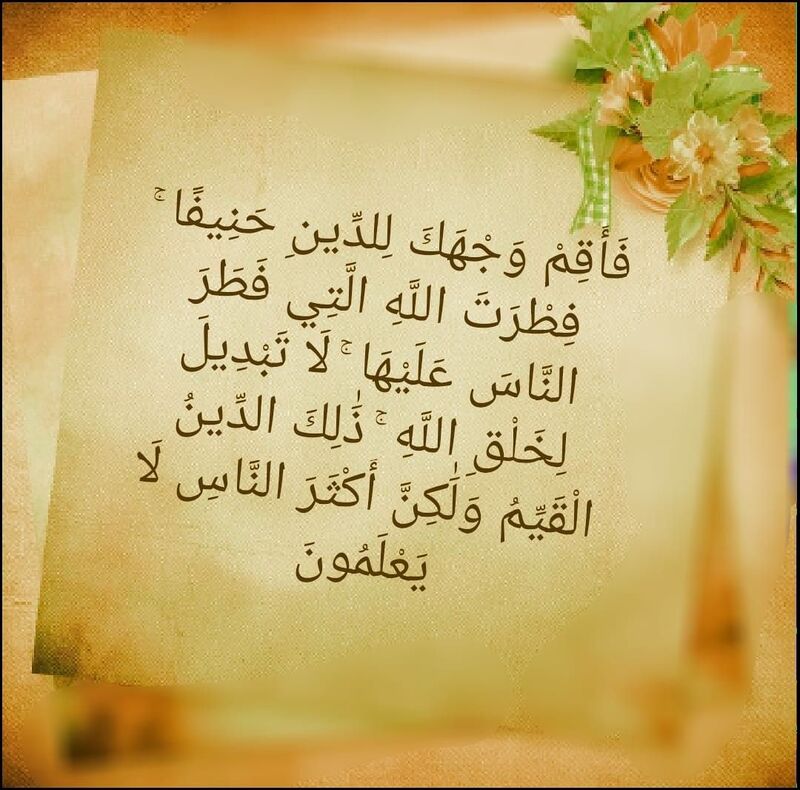 فَأَقِمْ وَجْهَكَ لِلدِّينِ حَنِيفًا ۚ
فِطْرَتَ اللَّهِ الَّتِي فَطَرَ
النَّاسَ عَلَيْهَا ۚ لَا تَبْدِيلَ
لِخَلْقِ اللَّهِ ۚ ذَٰلِكَ الدِّينُ
الْقَيِّمُ وَلَٰكِنَّ أَكْثَرَ النَّاسِ لَا
يَعْلَمُونَ